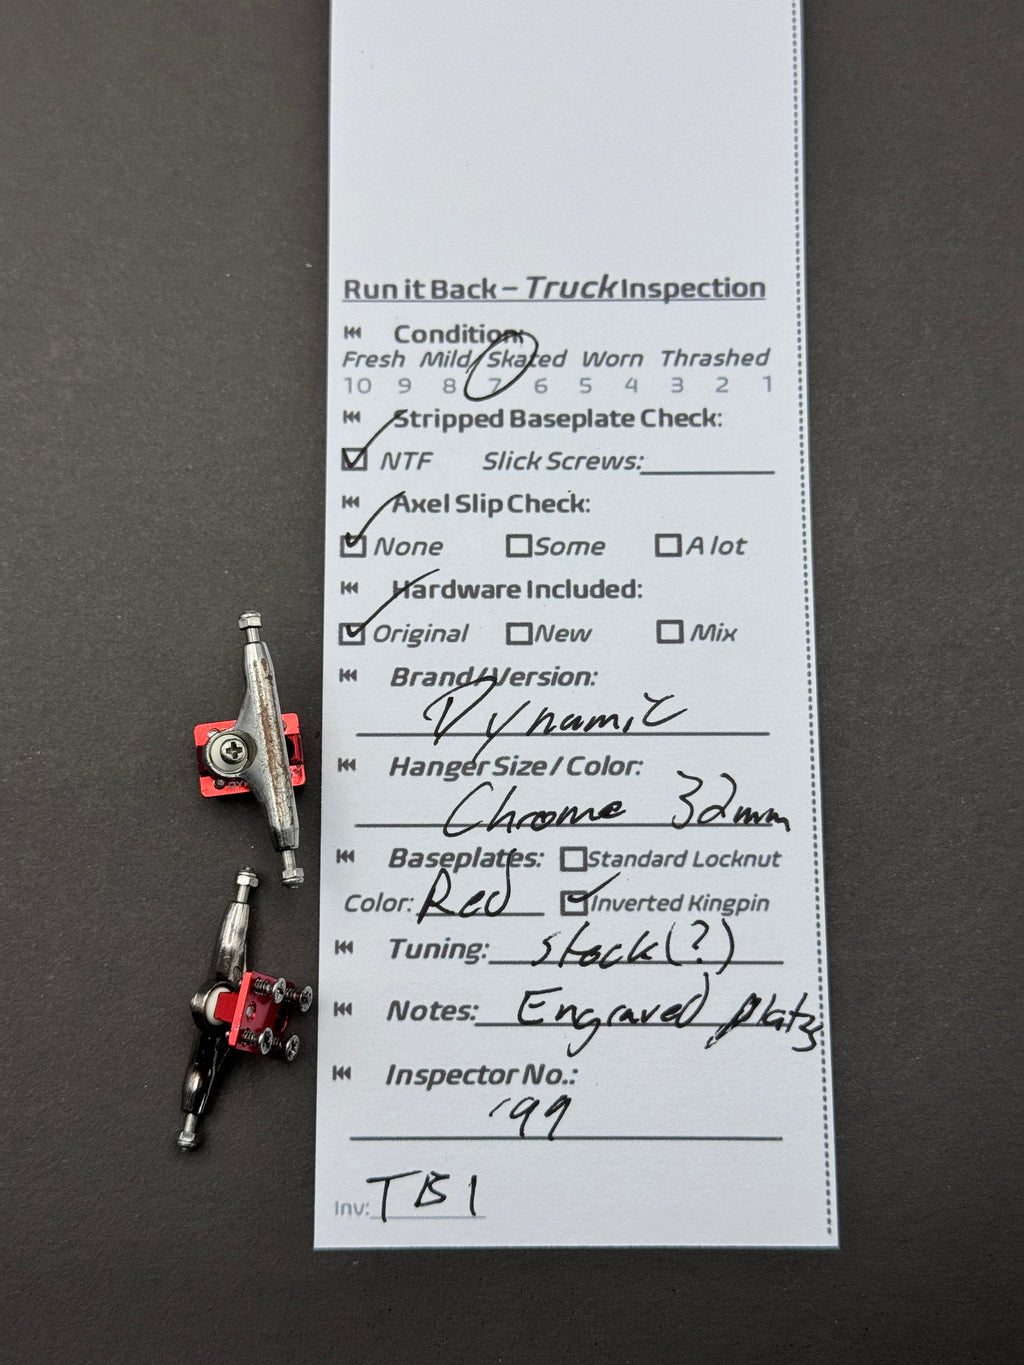 Run it Back - Truck Inspection
Condition:
Fresh Mild Skated Worn Thrashed
10 9 8 7 6 5 4 3 2 1
Stripped Baseplate Check:
NTF Slick Screws:
Axel Slip Check:
None Some A lot
Hardware Included:
Original New Mix
Brand/Version:
Dynamic
Hanger Size / Color:
Chrome 32mm
Baseplates: Standard Locknut
Color: Red Inverted Kingpin
Tuning: stock(?)
Notes: Engraved plates
Inspector No.:
'99
Inv: TB1